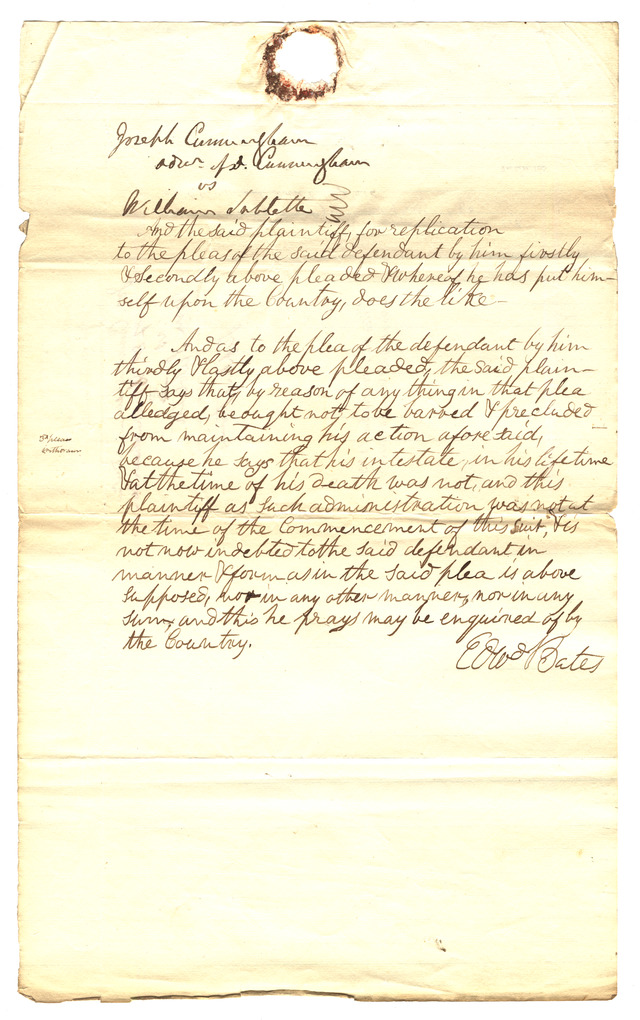 Joseph Cunningham
admr. of D. Cunningham
vs
William Sublette
And the said plaintiff, for replication
to the pleas of the said defendant by him firstly
& Secondly above pleaded & whereof he has put him-
self upon the Country, does the like -
And as to the plea of the defendant by him
thirdly & lastly above pleaded, the said plain-
tiff says that, by reason of any thing in that plea
alledged, he ought not, to be barred & precluded
from maintaining his action aforesaid,
because he says that his intestate, in his lifetime
& at the time of his death was not, and this
plaintiff as such administration was not at
the time of the Commencement of this suit, & is
not now indebted to the said defendant in
manner & form as in the said plea is above
supposed, nor in any other manner, nor in any
sum, and this he prays may be enquired of by
the Country.
Edwd Bates
3d plea
withdrawn